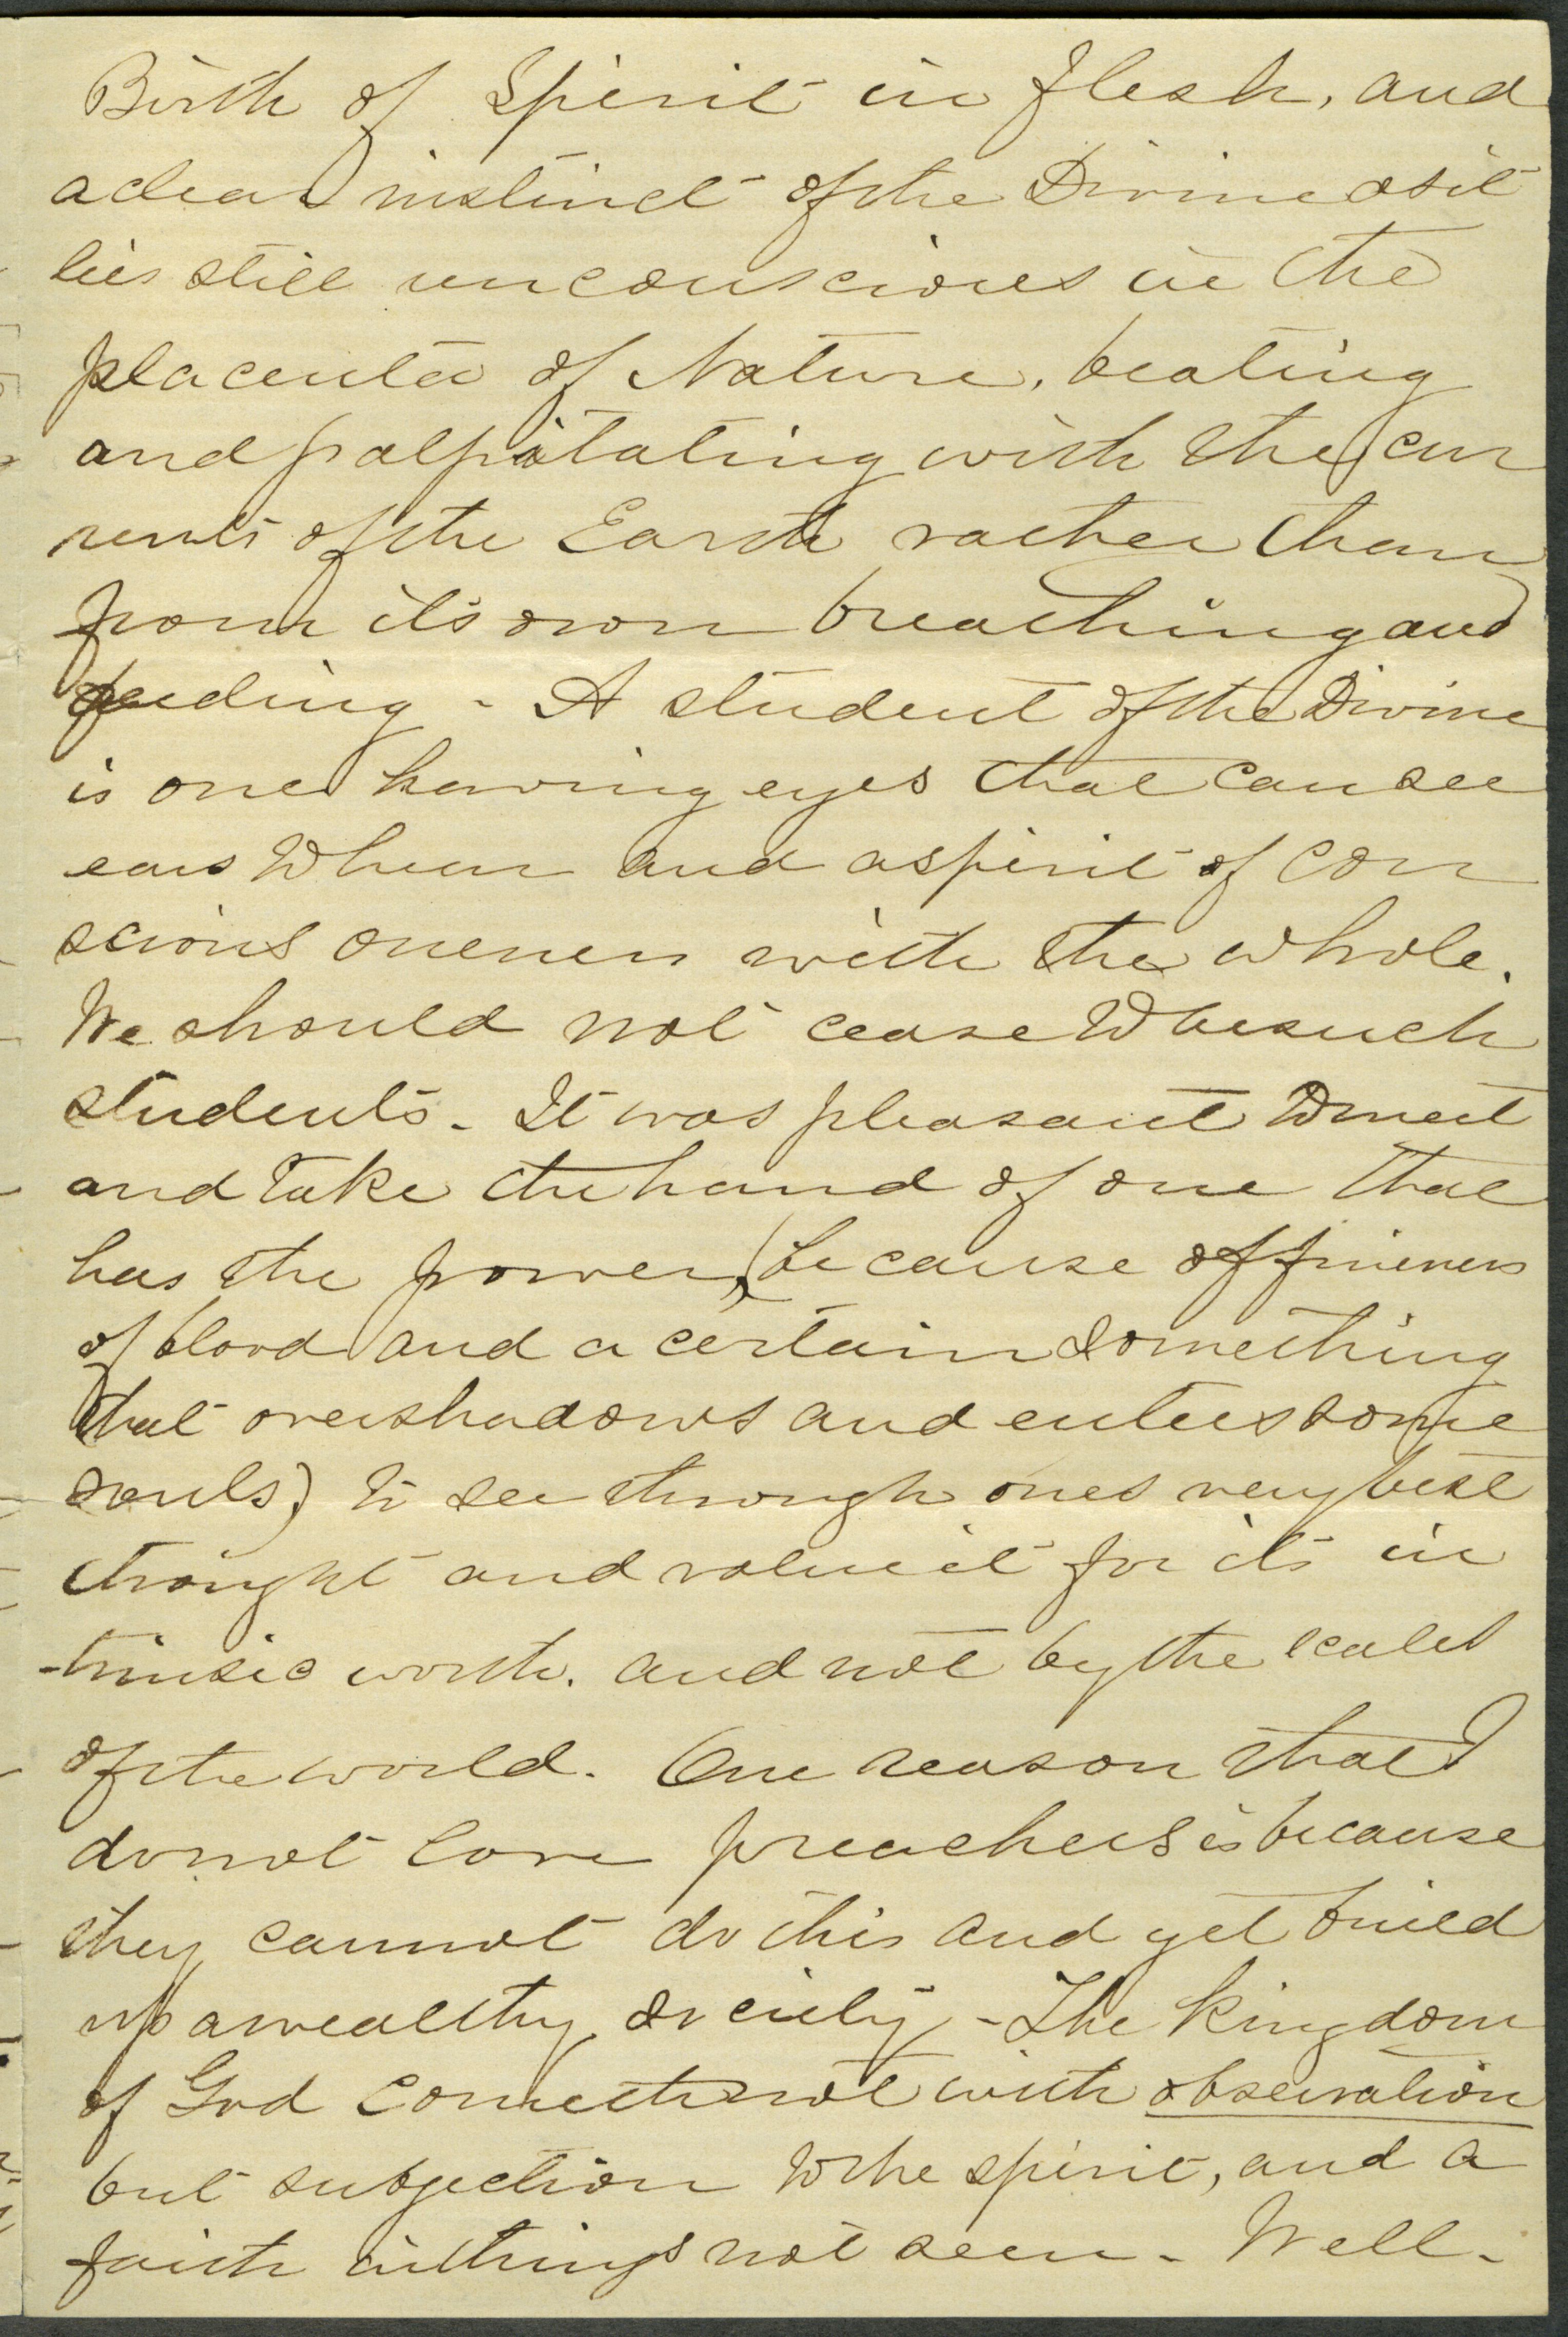 Birth of Spirit in flesh, and
a clear instinct of the Divine as it
lies still unconscious in the
placenta of Nature, beating
and palpitating with the cur
rents of the Earth rather than
from its own breathing and
feeding - A student of the Divine
is one having eyes that can see
ears to hear and a spirit of con
scious oneness with the whole.
We should not cease to be such
students. It was pleasant to meet
and take the hand of one that
has the power, (because of fineness
of blood and a certain something
that overshadows and enters some
souls) to see through ones very best
thought and value it for its in
-trinsic worth. and not by the scales
of the world. One reason that I
do not love preachers is because
they cannot do this and yet build
up a wealthy society - The Kingdom
of God cometh not with observation
but subjection to the spirit, and a
faith in things not seen - Well -